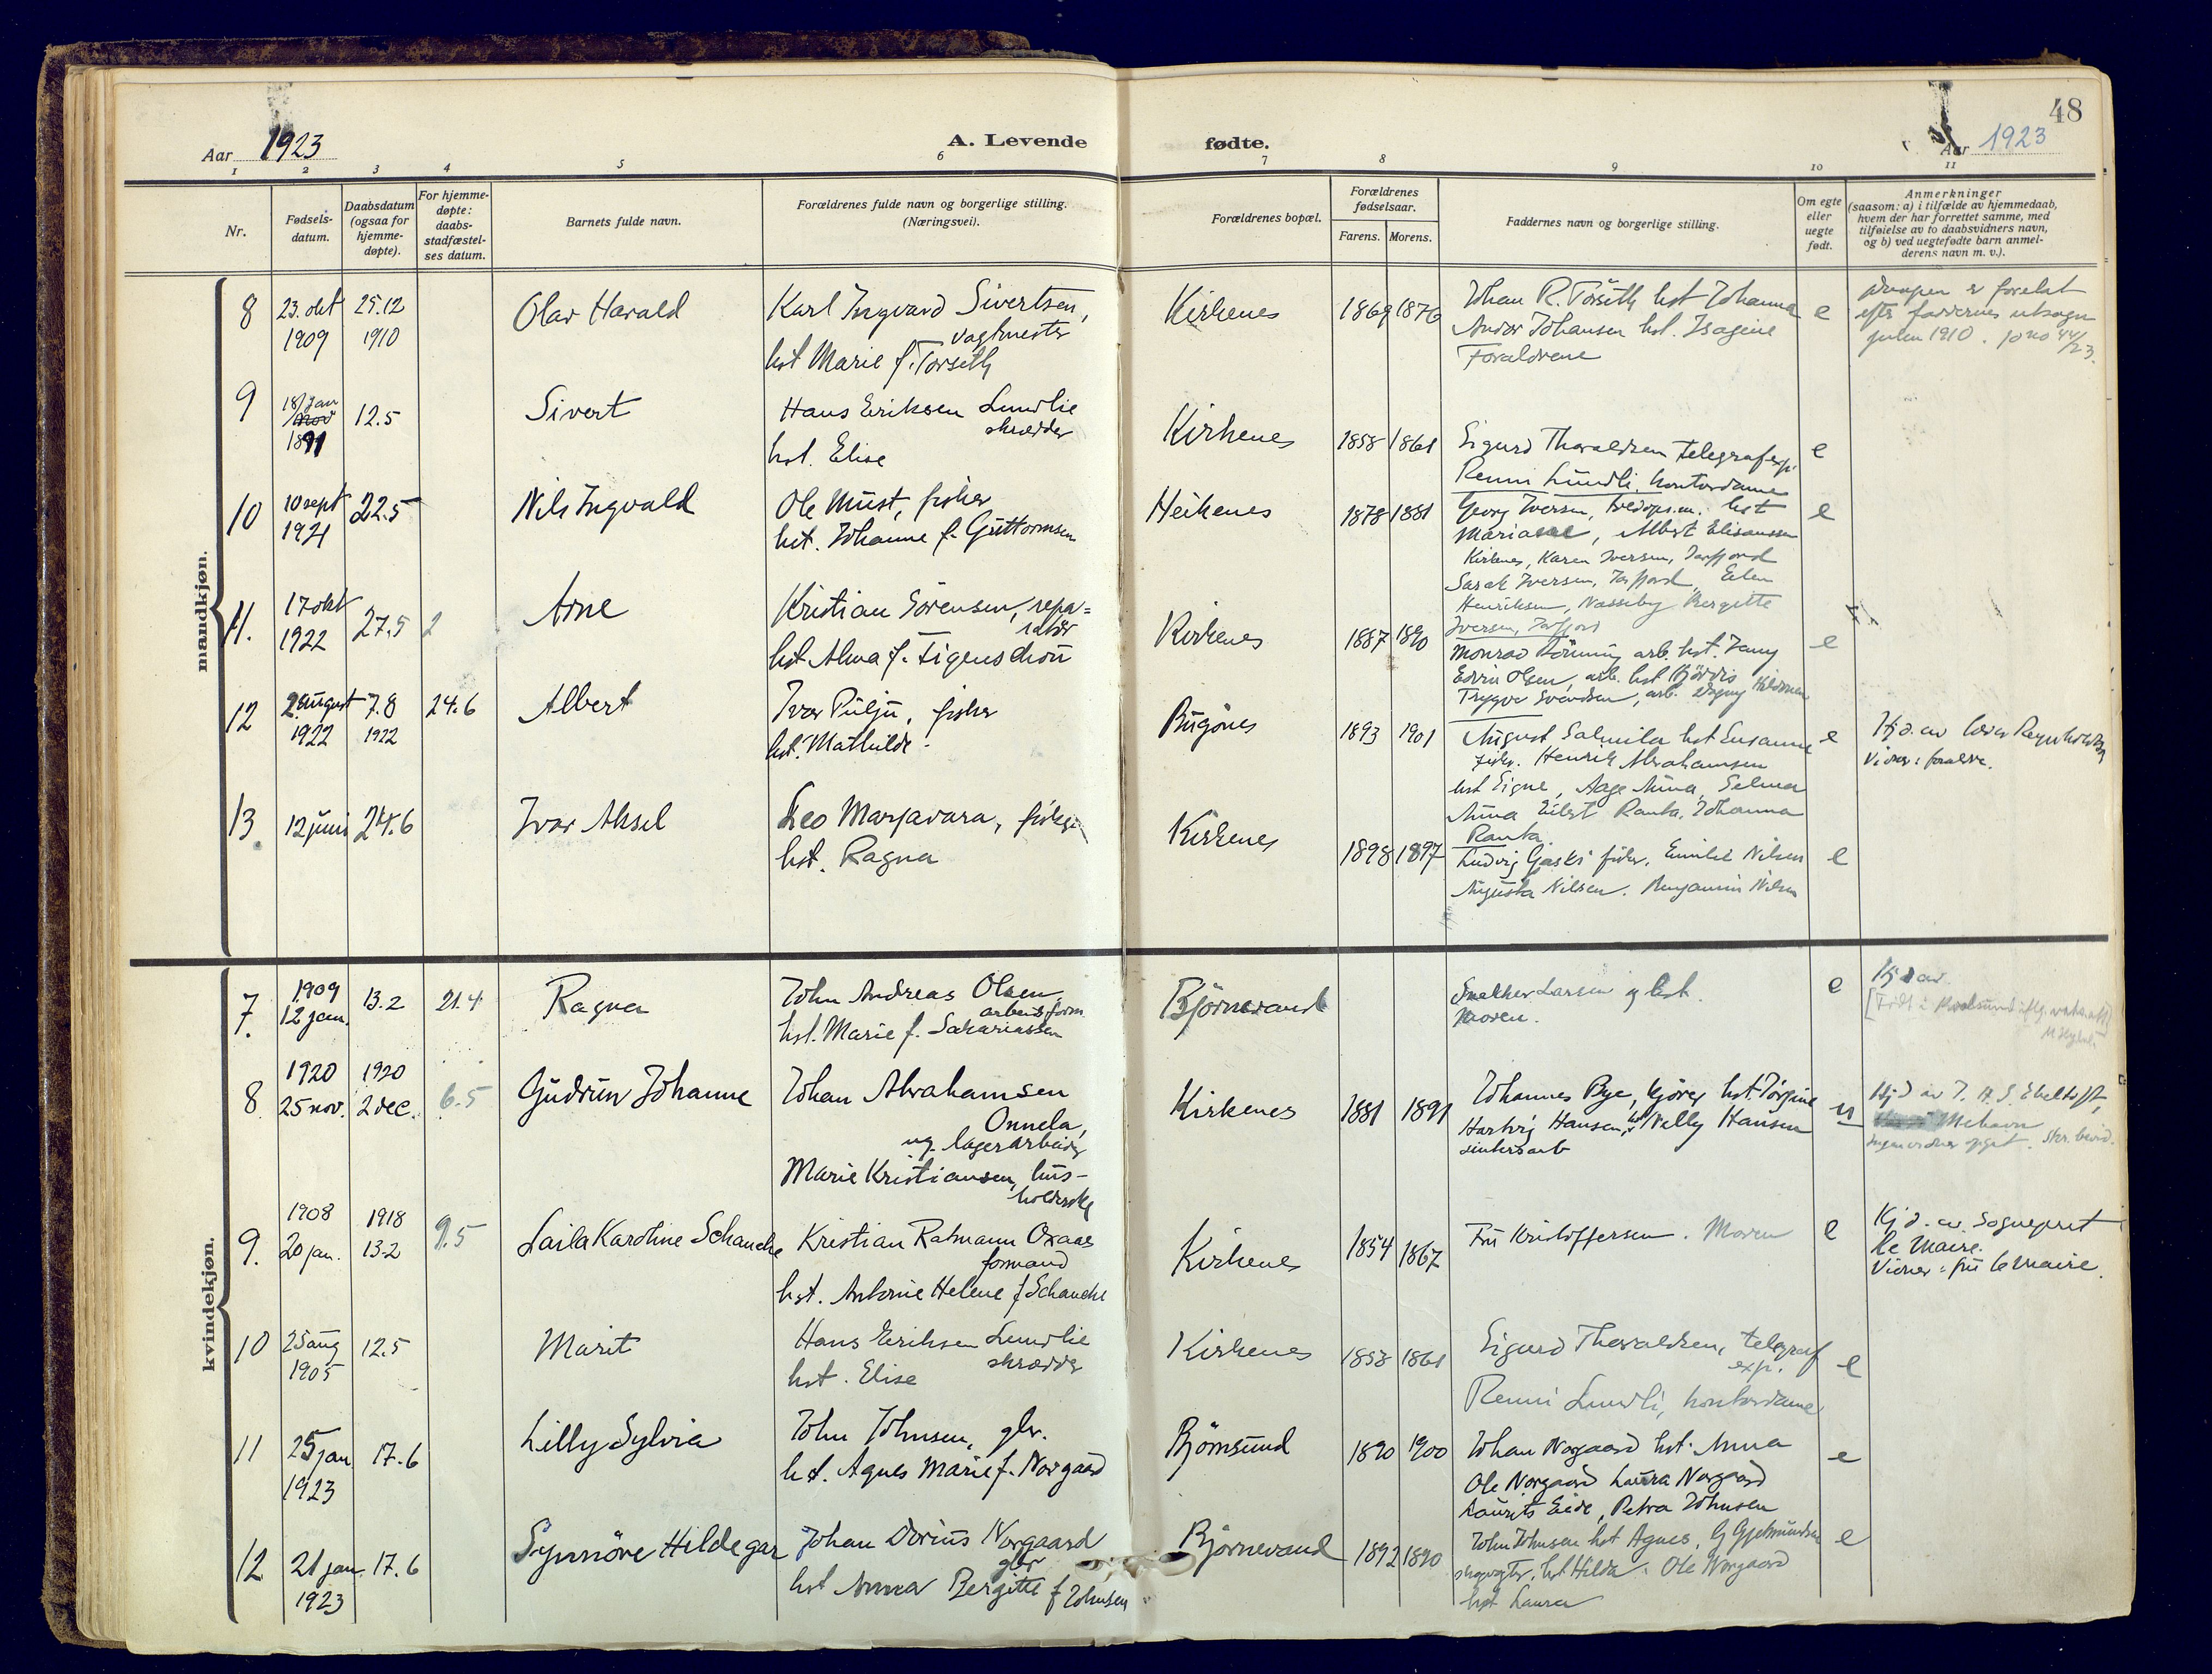 48
Aar 1923
A. Levende fødte.
Aar 1923
1 2 3 4 5 6 7 8 9 10 11
Nr.
Fødsels-
datum.
Daabsdatum
(ogsaa for
hjemme-
døpte).
For hjemme-
døpte:
daabs-
stadfæstel-
ses datum.
Barnets fulde navn.
Forældrenes fulde navn og borgerlige stilling.
(Næringsvei).
Forældrenes bopæl.
Forældrenes
fødselsaar.
Farens. Morens.
Faddernes navn og borgerlige stilling.
Om egte
eller
uegte
født.
Anmerkninger
(saasom: a) i tilfælde av hjemmedaab,
hvem der har forrettet samme, med
tilføielse av to daabsvidners navn,
og b) ved uegtefødte barn anmel-
derens navn m. v.).
mandkjøn.
8
23. okt
1909
25.12
1910
Olav Harald
Karl Ingvard Sivertsen,
vagtmester
hst Marie f. Torseth
Kirkenes
1869 1876
Johan R. Torseth hst Johanna
Andor Johansen hst. Isagine
Forældrene
e
Daapen er foretat
efter faddernes utsagn
julen 1910. jono 44/23.
9
18/jan
1891
12.5
Sivert
Hans Eriksen Lundlie
skrædder
hst. Elise
Kirkenes
1858 1861
Sigurd Thoraldsen telegrafexp.
Renni Lundli, kontordame
e
10
10 sept
1921
22.5
Nils Ingvald
Ole Must, fisker
hst. Johanne f. Guttormsen
Heikenes
1878 1881
Georg Iversen, hst
Mariane, Albert Elisaussen
Kirkenes, Karen Iversen, Jarfjord
Sarah Iversen, Jarfjord, Ellen
Henriksen, Nasseby Bergitte
Iversen, Jarfjord
e
11.
17 okt
1922
27.5
2
Arne
Kristian Sörensen, repa=
ratör
hst Alma f. Figenschou
Kirkenes
1887 1890
Monrad Rönning arb. hst. Jenny
Edvin Olsen, arb. hst Hjördis
Trygve Svendsen, arb. Dagny Hildonen
e
12
2 august
1922
7.8
1922
24.6
Albert
Ivar Pulju, fisker
hst. Mathilde.
Bugönes
1893 1901
August Salmila hst Susanne
fisker. Henrik Abrahamsen
hst Signe, Aage Aima, Selma
Aima Eilert Ranta, Johanna
Ranta
e
Hj.d. av lærer Reynholdtsen
Vidner: foreldre.
13.
12 juni
24.6
Ivar Aksel
Leo Marjavara, fisker
hst. Ragna
Kirkenes
1898 1897
Ludvig Gaski fisker, Emilie Nilsen
Augusta Nilsen. Benjamin Nilsen
e
kvindekjøn.
7.
1909
12 jan.
13.2
21.4
Ragna
John Andreas Olsen
arbeidsform.
hst. Marie f. Sakariassen
Björnevand
Snekker Larsen og hst.
Moren.
e
Hj d av
[Født i Kvalsund iflg.
8.
1920
25 nov.
1920
2 dec.
6.5
Gudrun Johanne
Johan Abrahamsen
Onnela,
ug. lagerarbeider
Marie Kristiansen, hus-
holderske
Kirkenes
1881 1891
Johannes Bye, kjörer hst. Jörgine
Hartvig Hansen, Nelly Hansen
sinkersarb
u
Hj.d av J. A. S. Ebeltoft,
Mehavn
Ingen vidner opgit. Skr. bevid.
9.
1908
20 jan.
1918
13.2
9.5
Laila Karoline Schanche
Kristian Ratmann Oxaas
formand
hst. Antonie Helene f Schanche
Kirkenes
1854 1867
Fru Kristoffersen. Moren
e
Hj d. av. Sogneprest
le Maire.
Vidner: fru le Maire.
10
25 aug
1905
12.5
Marit
Hans Eriksen Lundlie
skrædder
hst. Elise
Kirkenes
1858 1861
Sigurd Thoraldsen, telegraf
exp.
Renni Lundli, kontordame
e
11
25 jan
1923
17.6
Lilly Sylvia
John Johnsen, gbr.
hst. Agnes Marie f. Norgaard
Björnsund
1890 1900
Johan Norgaard hst. Anna
Ole Norgaard Laura Norgaard
Laurits Eide, Petra Johnsen
e
12
21 jan.
1923
17.6
Synnöve Hildegar
Johan Dorius Norgaard
gbr
hst Anna Bergitte f Johnsen
Björnevand
1892 1890
John Johnsen hst Agnes, G Gjelmundsen
skogvogter, hst Hilda. Ole Norgaard
hst Laura
e